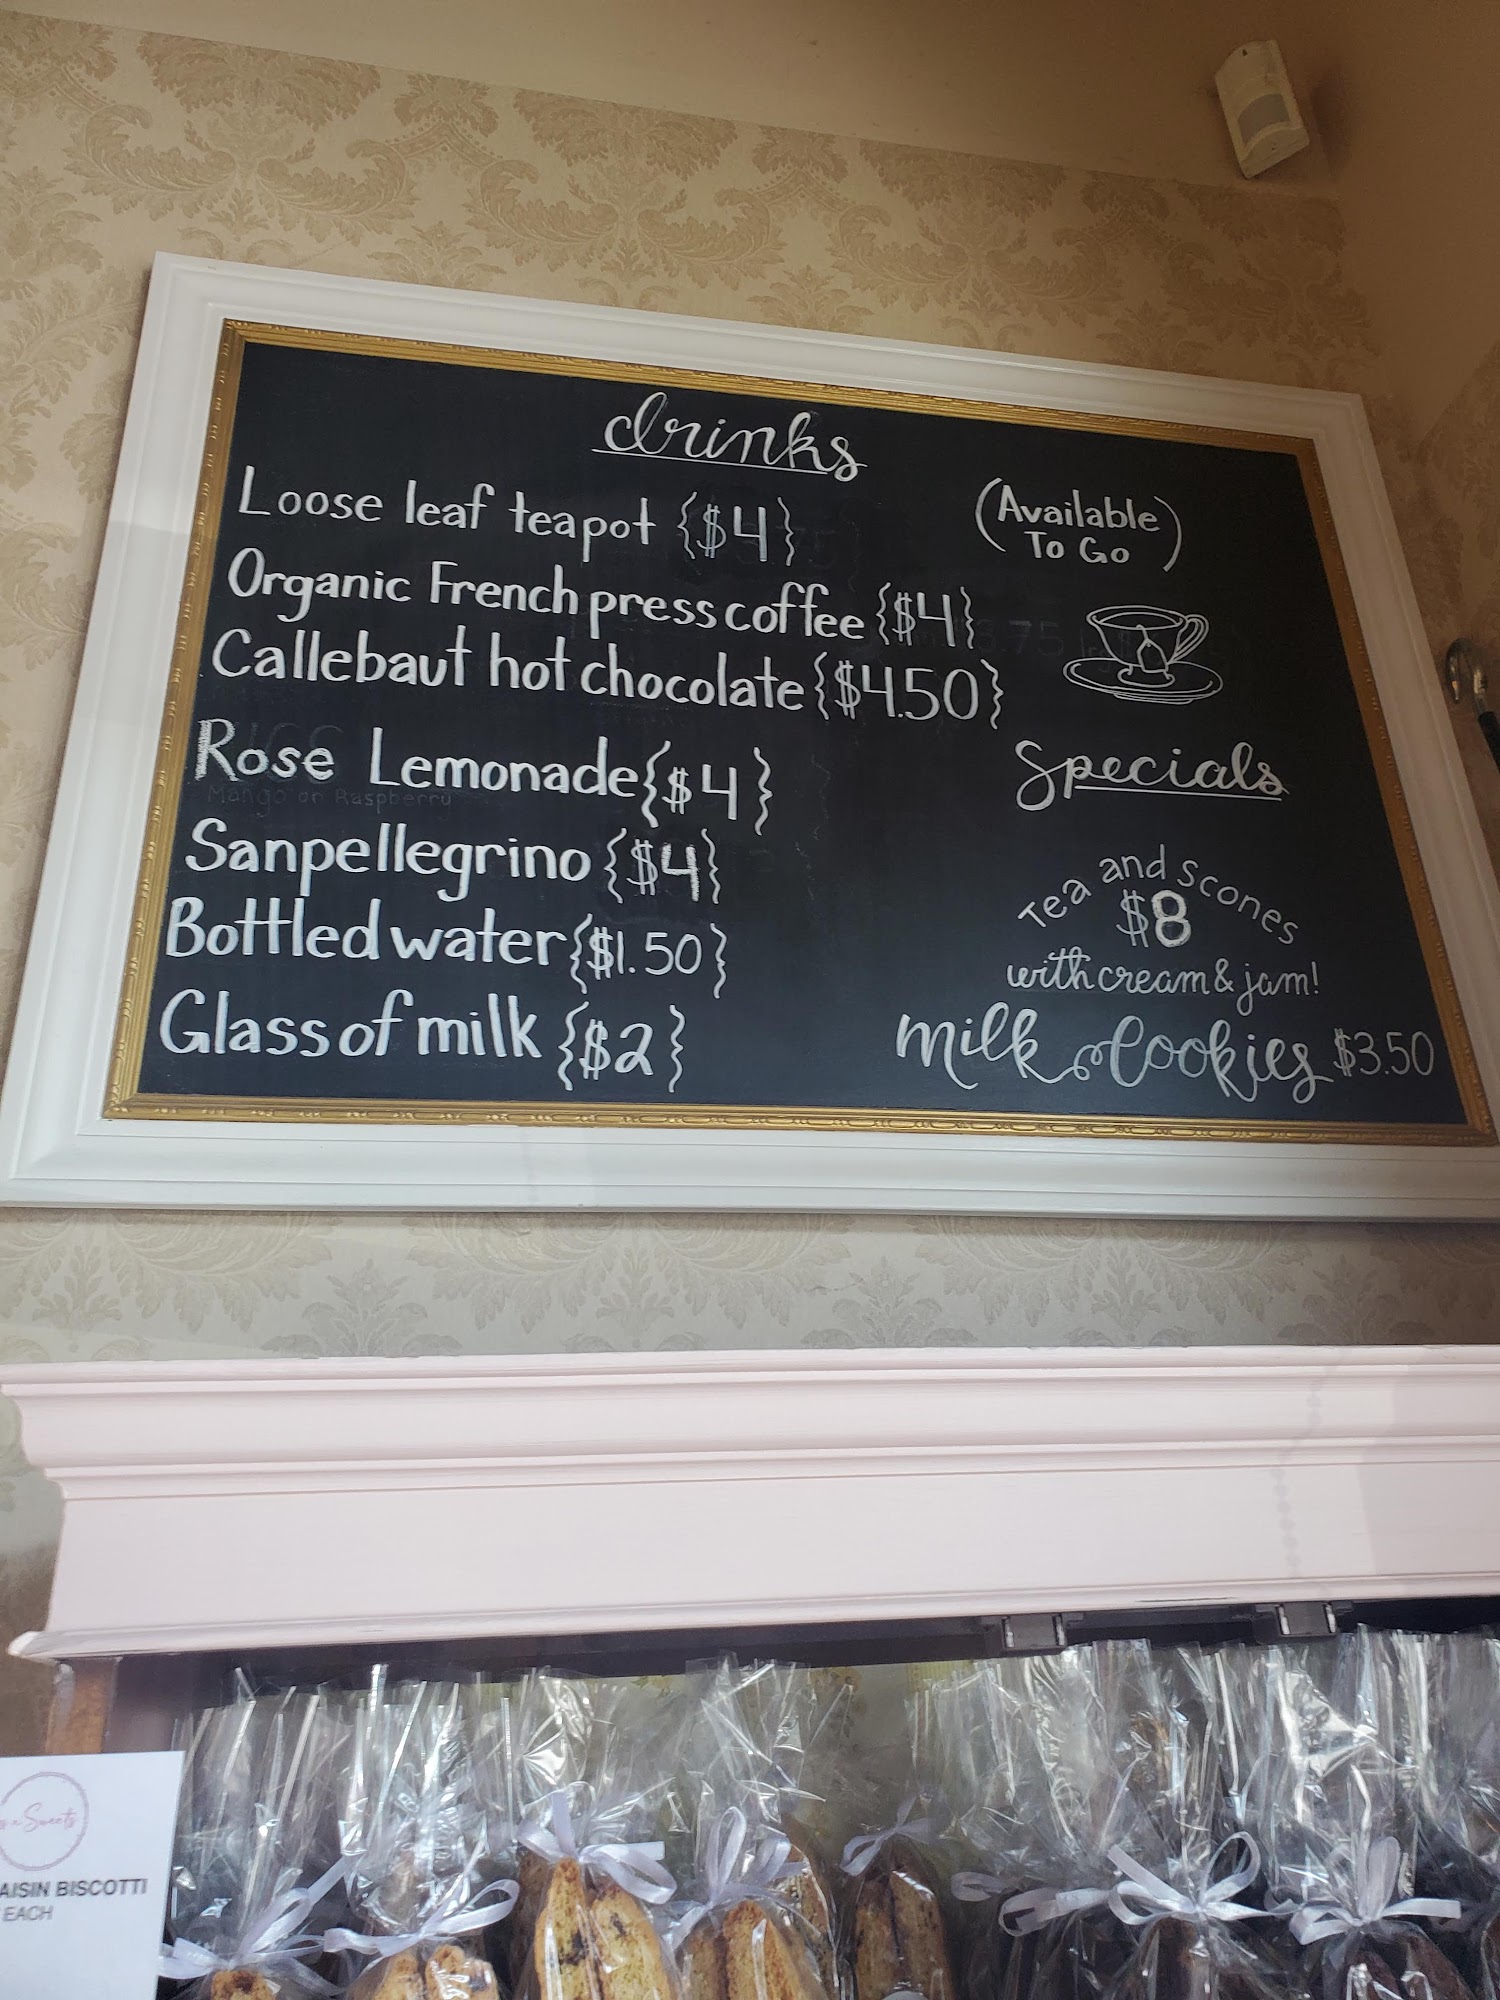 drinks
Loose leaf teapot {$4}
(Available To Go)
Organic French press coffee {$4}
Callebaut hot chocolate {$4.50}
Rose Lemonade {$4}
Mango or Raspberry
Sanpellegrino {$4}
Bottled water {$1.50}
Glass of milk {$2}
Specials
Tea and Scones
$8
with cream & jam!
milk & Cookies $3.50
Sweets
AISIN BISCOTTI
EACH